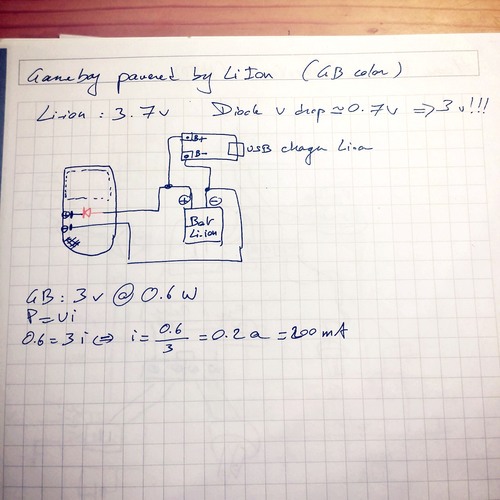 Gameboy powered by LiIon (GB color)
Li-ion : 3.7v Diode v drop ≃ 0.7v ⇒ 3v!!!
B+
B-
USB charger Lion
⊕ ⊖
Bat
Li-ion
GB : 3v @ 0.6w
P=Ui
0.6 = 3i ⇔ i = 0.6/3 = 0.2a = 200mA